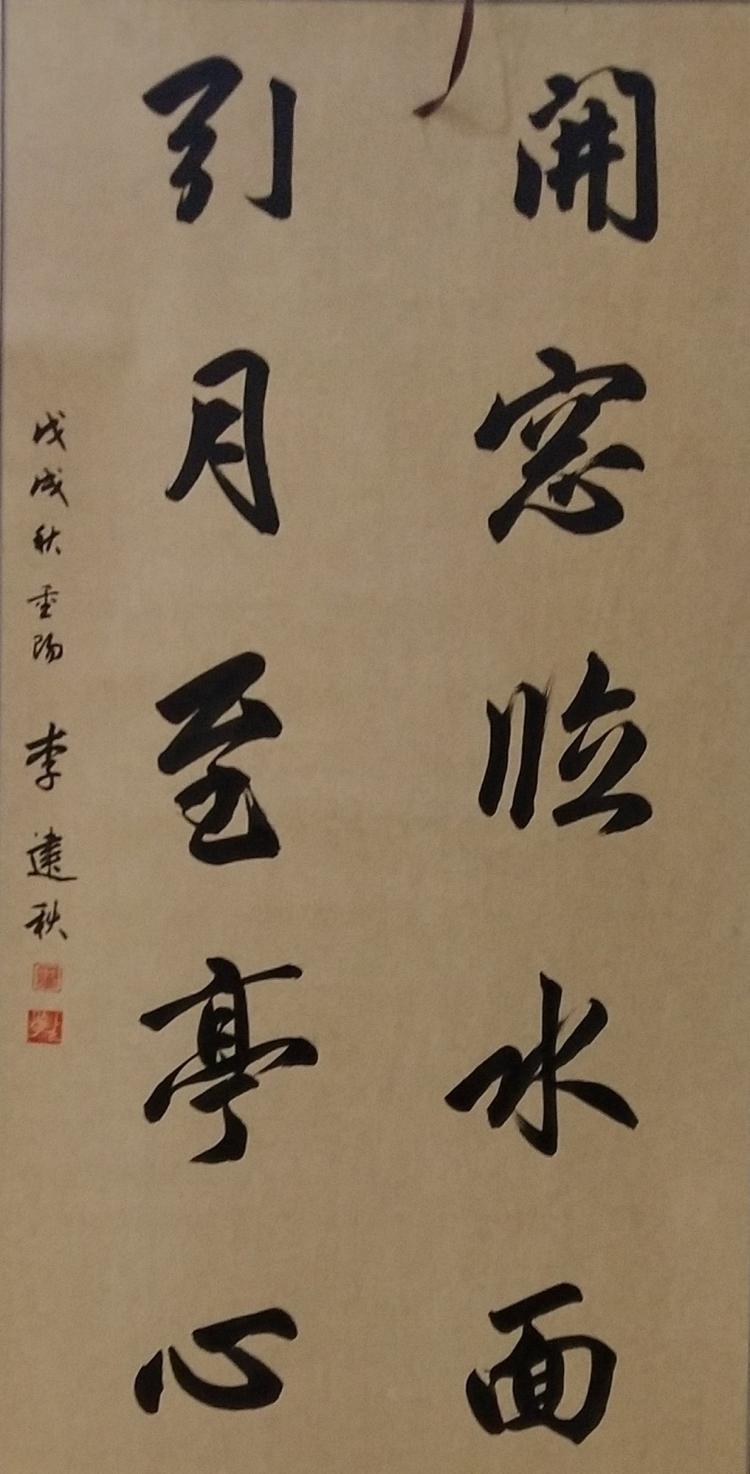 開窓臨水面
引月至亭心
戊戌秋重陽 李建秋